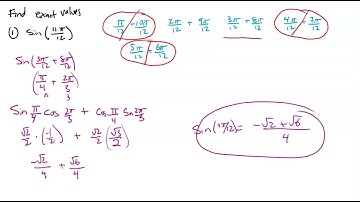 Find exact values
① sin(11π/12)
π/12 + 10π/12 2π/12 + 9π/12 3π/12 + 8π/12 4π/12 + 7π/12
5π/12 + 6π/12
Sin(3π/12 + 8π/12)
(π/4 + 2π/3)
Sin π/4 cos 2π/3 + cos π/4 Sin 2π/3
√2/2 · (-1/2) + √2/2 (√3/2)
-√2/4 + √6/4
Sin(11π/12) = -√2 + √6 / 4